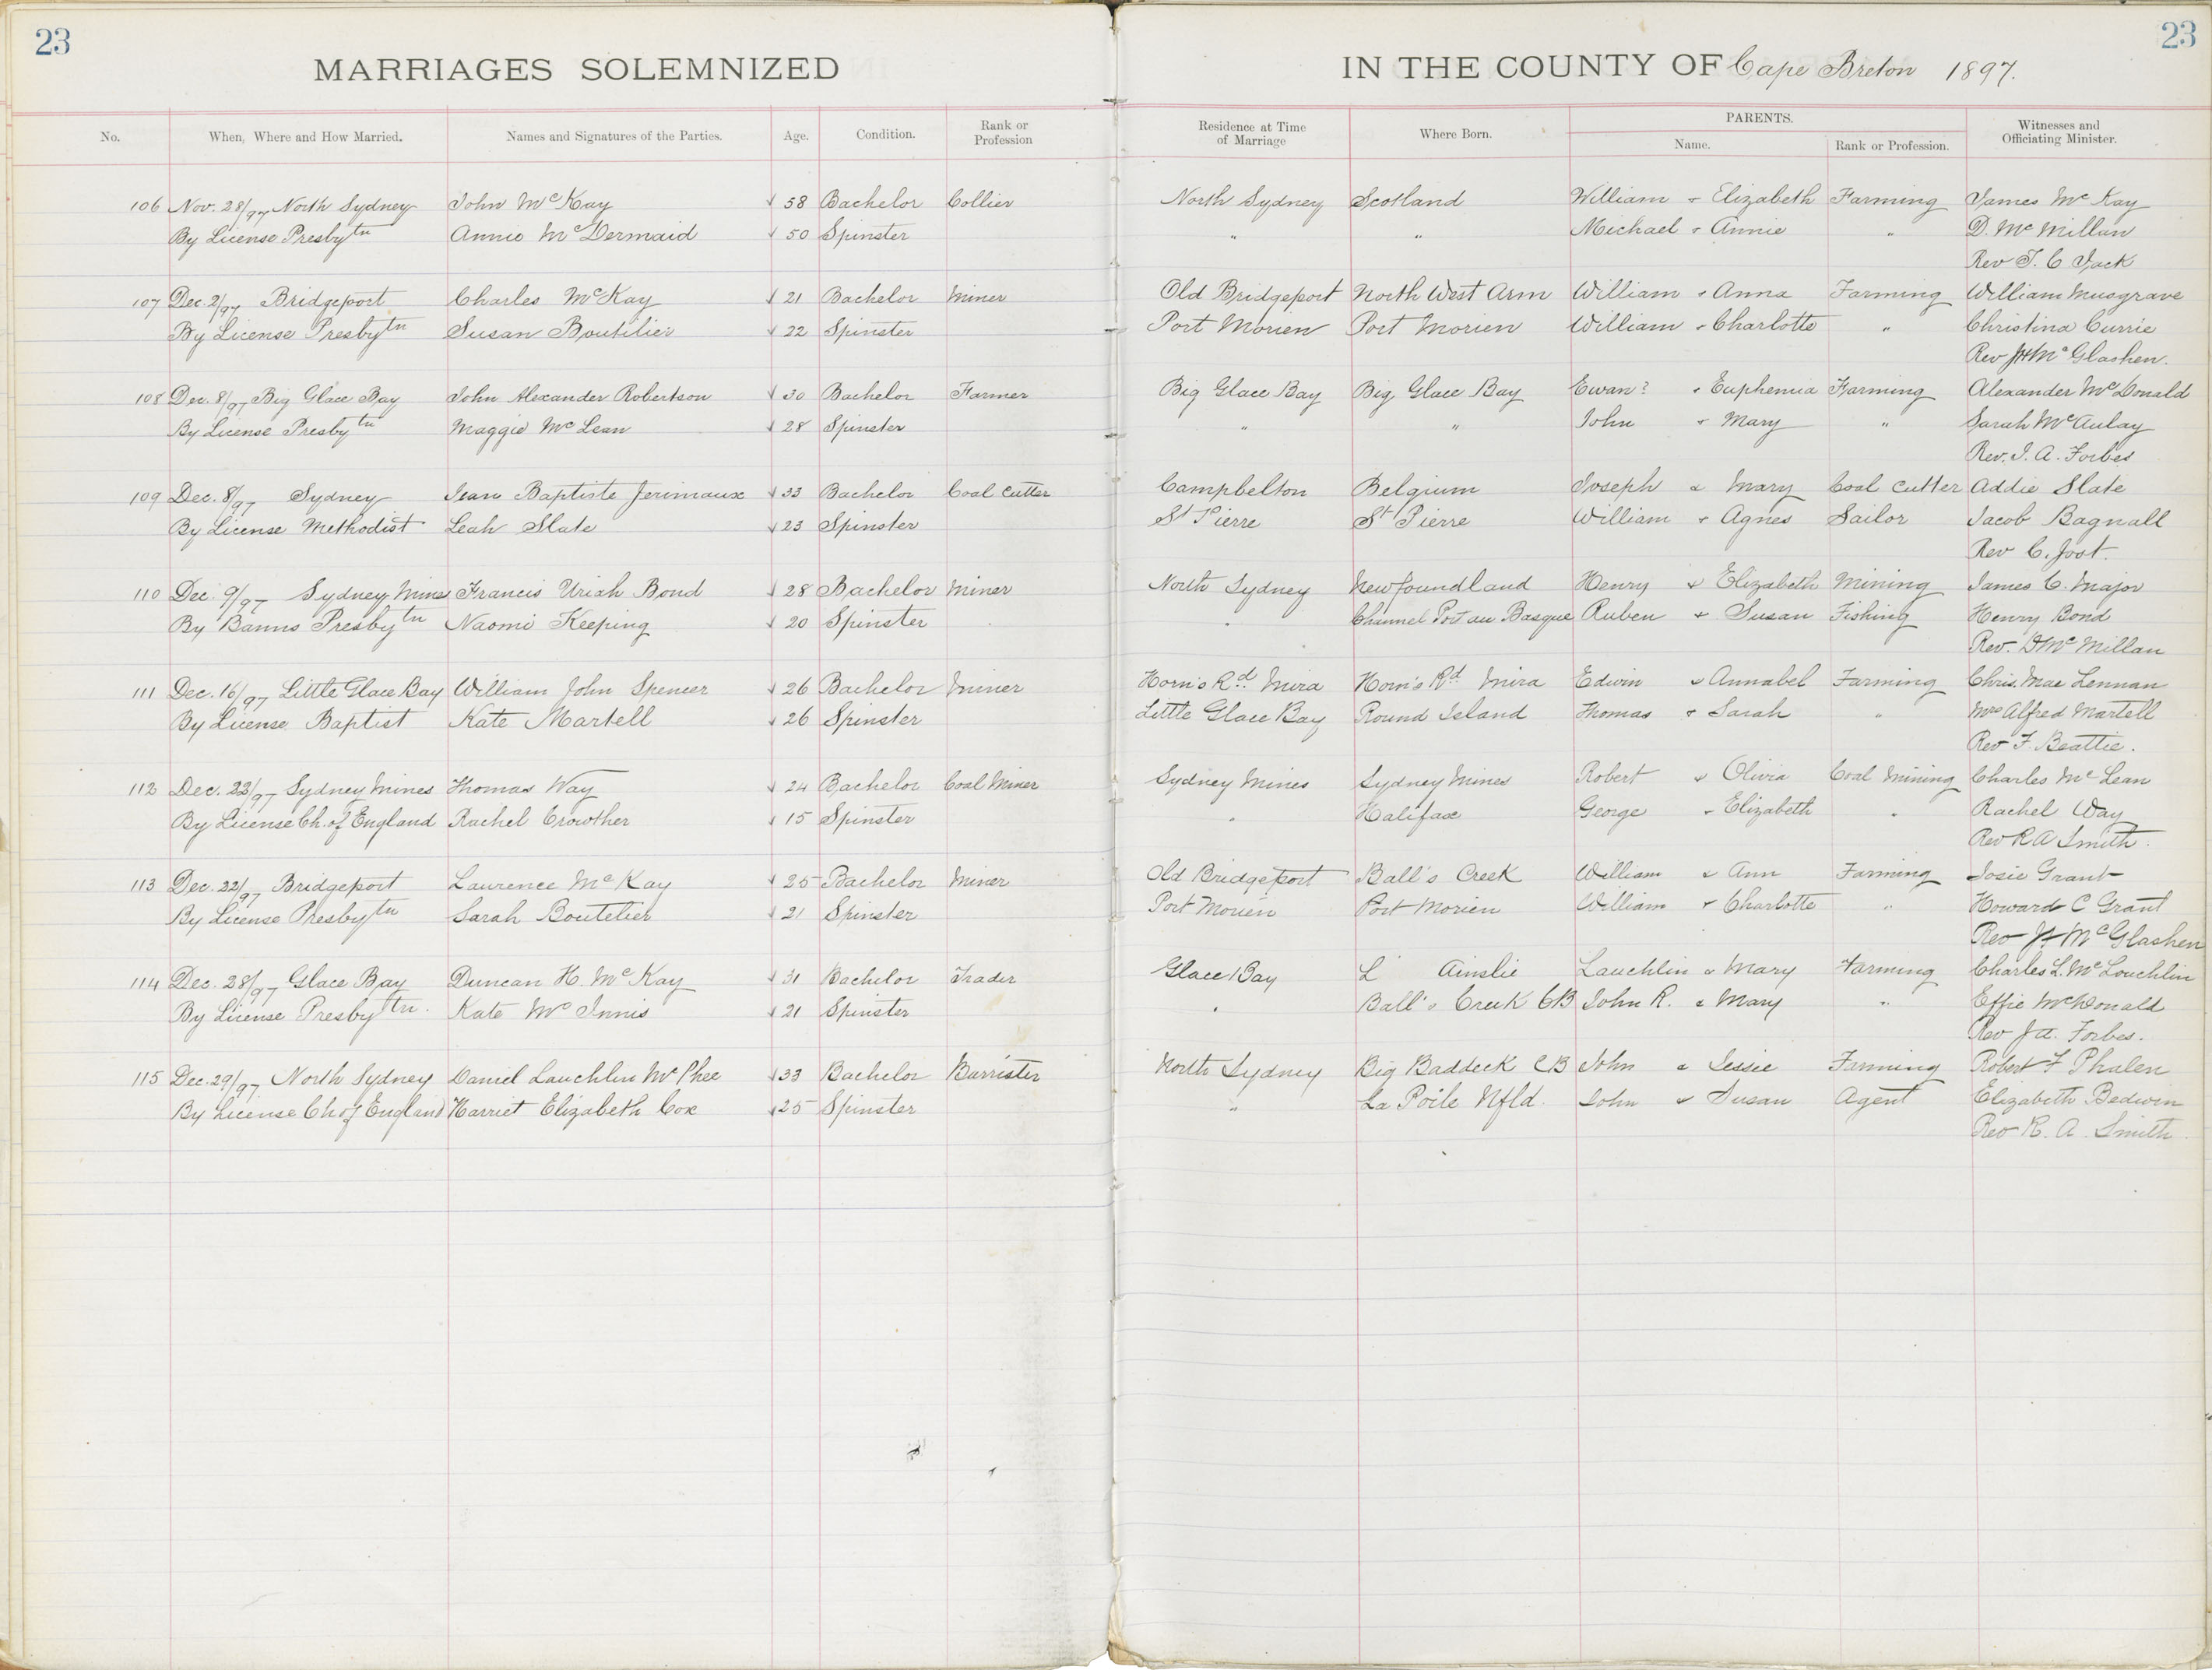 23
23
MARRIAGES SOLEMNIZED IN THE COUNTY OF Cape Breton 1897.
No. When, Where and How Married. Names and Signatures of the Parties. Age. Condition. Rank or Profession Residence at Time of Marriage Where Born. PARENTS. Name. Rank or Profession. Witnesses and Officiating Minister.
106 Nov. 28/97 North Sydney John McKay 58 Bachelor Collier North Sydney Scotland William & Elizabeth Farming James McKay
By License Presbytn Annie McDermaid 50 Spinster " " Michael & Annie " D. McMillan
Rev T. C Jack
107 Dec. 2/97 Bridgeport Charles McKay 21 Bachelor Miner Old Bridgeport North West Arm William & Anna Farming William Musgrave
By License Presbytn Susan Boutilier 22 Spinster Port Morien Port Morien William & Charlotte " Christina Currie
Rev McGlashen.
108 Dec. 8/97 Big Glace Bay John Alexander Robertson 30 Bachelor Farmer Big Glace Bay Big Glace Bay Ewan? & Euphemia Farming Alexander McDonald
By License Presbytn Maggie McLean 28 Spinster " " John & Mary " Sarah McAulay
Rev. J. A. Forbes
109 Dec. 8/97 Sydney Jean Baptiste Jerimaux 33 Bachelor Coal Cutter Campbelton Belgium Joseph & Mary Coal Cutter Addie Slate
By License Methodist Leah Slate 23 Spinster St Pierre St Pierre William & Agnes Sailor Jacob Bagnall
Rev C. Joot.
110 Dec. 9/97 Sydney Mines Francis Uriah Bond 28 Bachelor Miner North Sydney Newfoundland Henry & Elizabeth Mining James C. Major
By Banns Presbytn Naomi Keeping 20 Spinster " Channel Port au Basque Ruben & Susan Fishing Henry Bond
Rev. D McMillan
111 Dec. 16/97 Little Glace Bay William John Spencer 26 Bachelor Miner Horn's Rd. Mira Horn's Rd Mira Edwin & Annabel Farming Chris. MacLennan
By License Baptist Kate Martell 26 Spinster Little Glace Bay Round Island Thomas & Sarah " Mrs Alfred Martell
Rev F. Beattie.
112 Dec. 22/97 Sydney Mines Thomas Way 24 Bachelor Coal Miner Sydney Mines Sydney Mines Robert & Olivia Coal Mining Charles McLean
By License Ch. of England Rachel Crowther 15 Spinster " Halifax George & Elizabeth " Rachel Way
Rev R A Smith.
113 Dec. 22/97 Bridgeport Laurence McKay 25 Bachelor Miner Old Bridgeport Ball's Creek William & Ann Farming Josie Grant
By License Presbytn Sarah Boutelier 21 Spinster Port Morien Port Morien William & Charlotte " Howard C Grant
Rev McGlashen
114 Dec. 28/97 Glace Bay Duncan H. McKay 31 Bachelor Trader Glace Bay L Ainslie Lauchlin & Mary Farming Charles L. McLouchlin
By License Presbytn. Kate McInnis 21 Spinster " Ball's Creek CB John R. & Mary " Effie McDonald
Rev J A. Forbes.
115 Dec. 29/97 North Sydney Daniel Lauchlin McPhee 33 Bachelor Barrister North Sydney Big Baddeck CB John & Jessie Farming Robert F Phalen
By License Ch of England Harriet Elizabeth Cox 25 Spinster " La Poile Nfld. John & Susan Agent Elizabeth Bedwin
Rev R. A. Smith